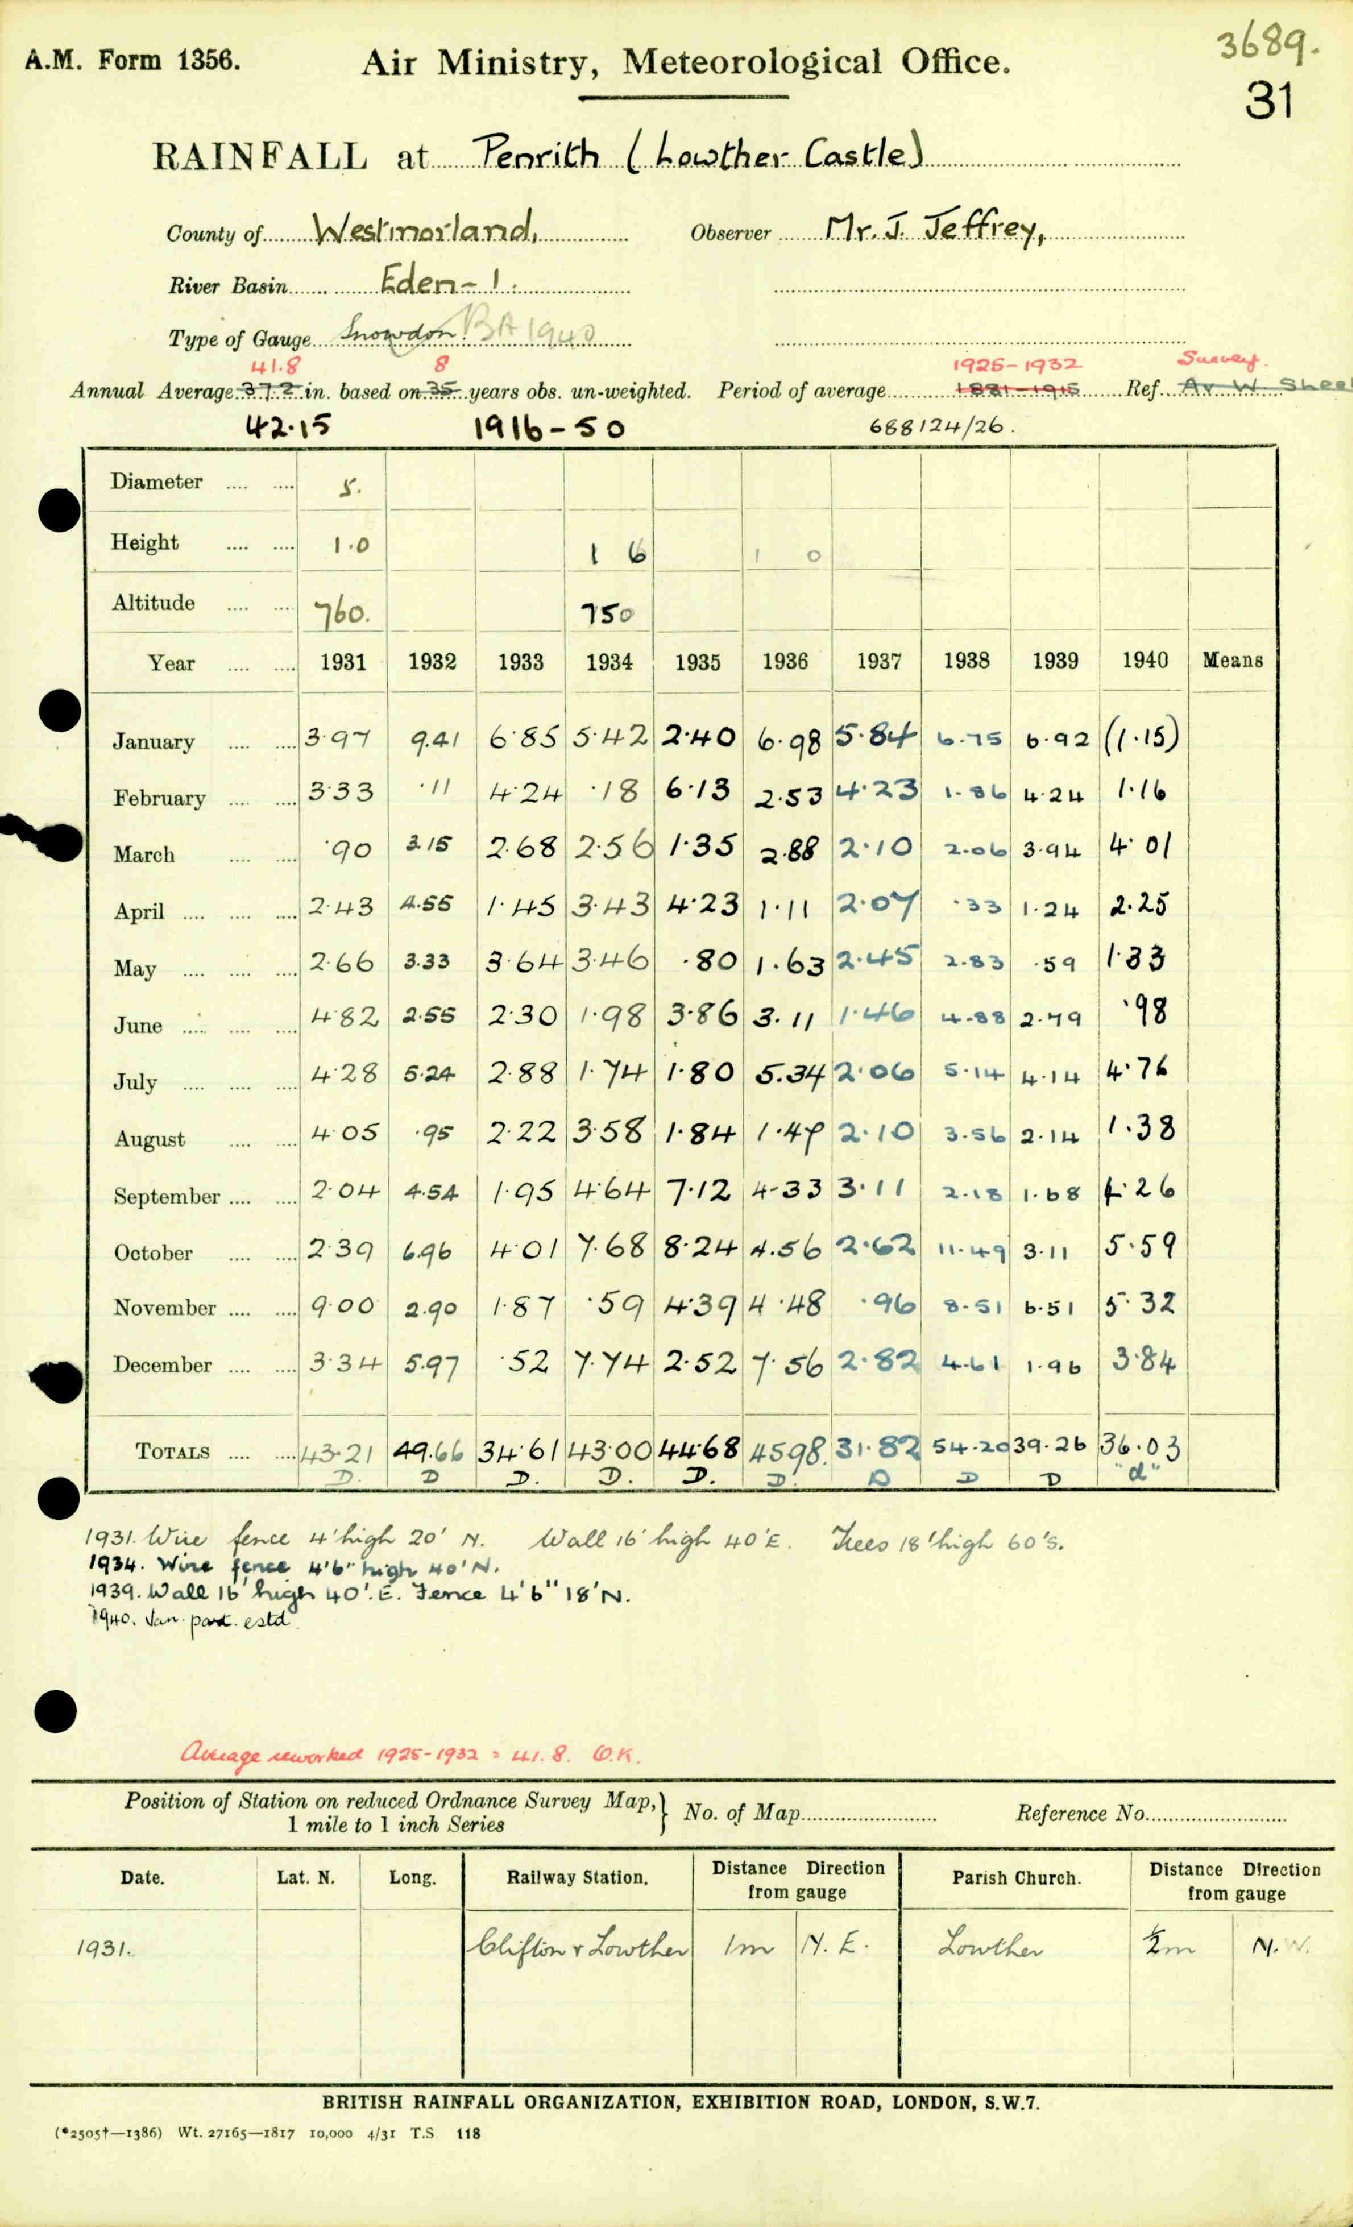 3689.
A.M. Form 1356. Air Ministry, Meteorological Office.
31
RAINFALL at Penrith (Lowther Castle)
County of Westmorland, Observer Mr. J. Jeffrey,
River Basin Eden - 1.
Type of Gauge Snowdon. BA 1940
41.8 8 1925-1932 Survey.
Annual Average 37.2 in. based on 35 years obs. un-weighted. Period of average 1881-1915 Ref. Av. W. Sheet
42.15 1916-50 688124/26.
Diameter 5.
Height 1.0 1 6 1 0
Altitude 760. 750
Year 1931 1932 1933 1934 1935 1936 1937 1938 1939 1940 Means
January 3.97 9.41 6.85 5.42 2.40 6.98 5.84 6.75 6.92 (1.15)
February 3.33 .11 4.24 .18 6.13 2.53 4.23 1.86 4.24 1.16
March .90 3.15 2.68 2.56 1.35 2.88 2.10 2.06 3.94 4.01
April 2.43 4.55 1.45 3.43 4.23 1.11 2.07 .33 1.24 2.25
May 2.66 3.33 3.64 3.46 .80 1.63 2.45 2.83 .59 1.33
June 4.82 2.55 2.30 1.98 3.86 3.11 1.46 4.88 2.79 .98
July 4.28 5.24 2.88 1.74 1.80 5.34 2.06 5.14 4.14 4.76
August 4.05 .95 2.22 3.58 1.84 1.47 2.10 3.56 2.14 1.38
September 2.04 4.54 1.95 4.64 7.12 4.33 3.11 2.18 1.68 4.26
October 2.39 6.96 4.01 7.68 8.24 4.56 2.62 11.49 3.11 5.59
November 9.00 2.90 1.87 .59 4.39 4.48 .96 8.51 6.51 5.32
December 3.34 5.97 .52 7.74 2.52 7.56 2.82 4.61 1.96 3.84
TOTALS 43.21 49.66 34.61 43.00 44.68 45.98. 31.82 54.20 39.26 36.03
D. D D. D. D. D. D D D "d"
1931. Wire fence 4' high 20' N. Wall 16' high 40' E. Trees 18' high 60' S.
1934. Wire fence 4'6" high 40' N.
1939. Wall 16' high 40'. E. Fence 4'6" 18' N.
1940. Jan. part. estd.
Average reworked 1925-1932 = 41.8. O.K.
Position of Station on reduced Ordnance Survey Map, } No. of Map Reference No.
1 mile to 1 inch Series
Date. Lat. N. Long. Railway Station. Distance Direction from gauge Parish Church. Distance Direction from gauge
1931. Clifton & Lowther 1m N. E. Lowther ½m N.W.
BRITISH RAINFALL ORGANIZATION, EXHIBITION ROAD, LONDON, S.W.7.
(*2505†—1386) Wt. 27165—1817 10,000 4/31 T.S 118